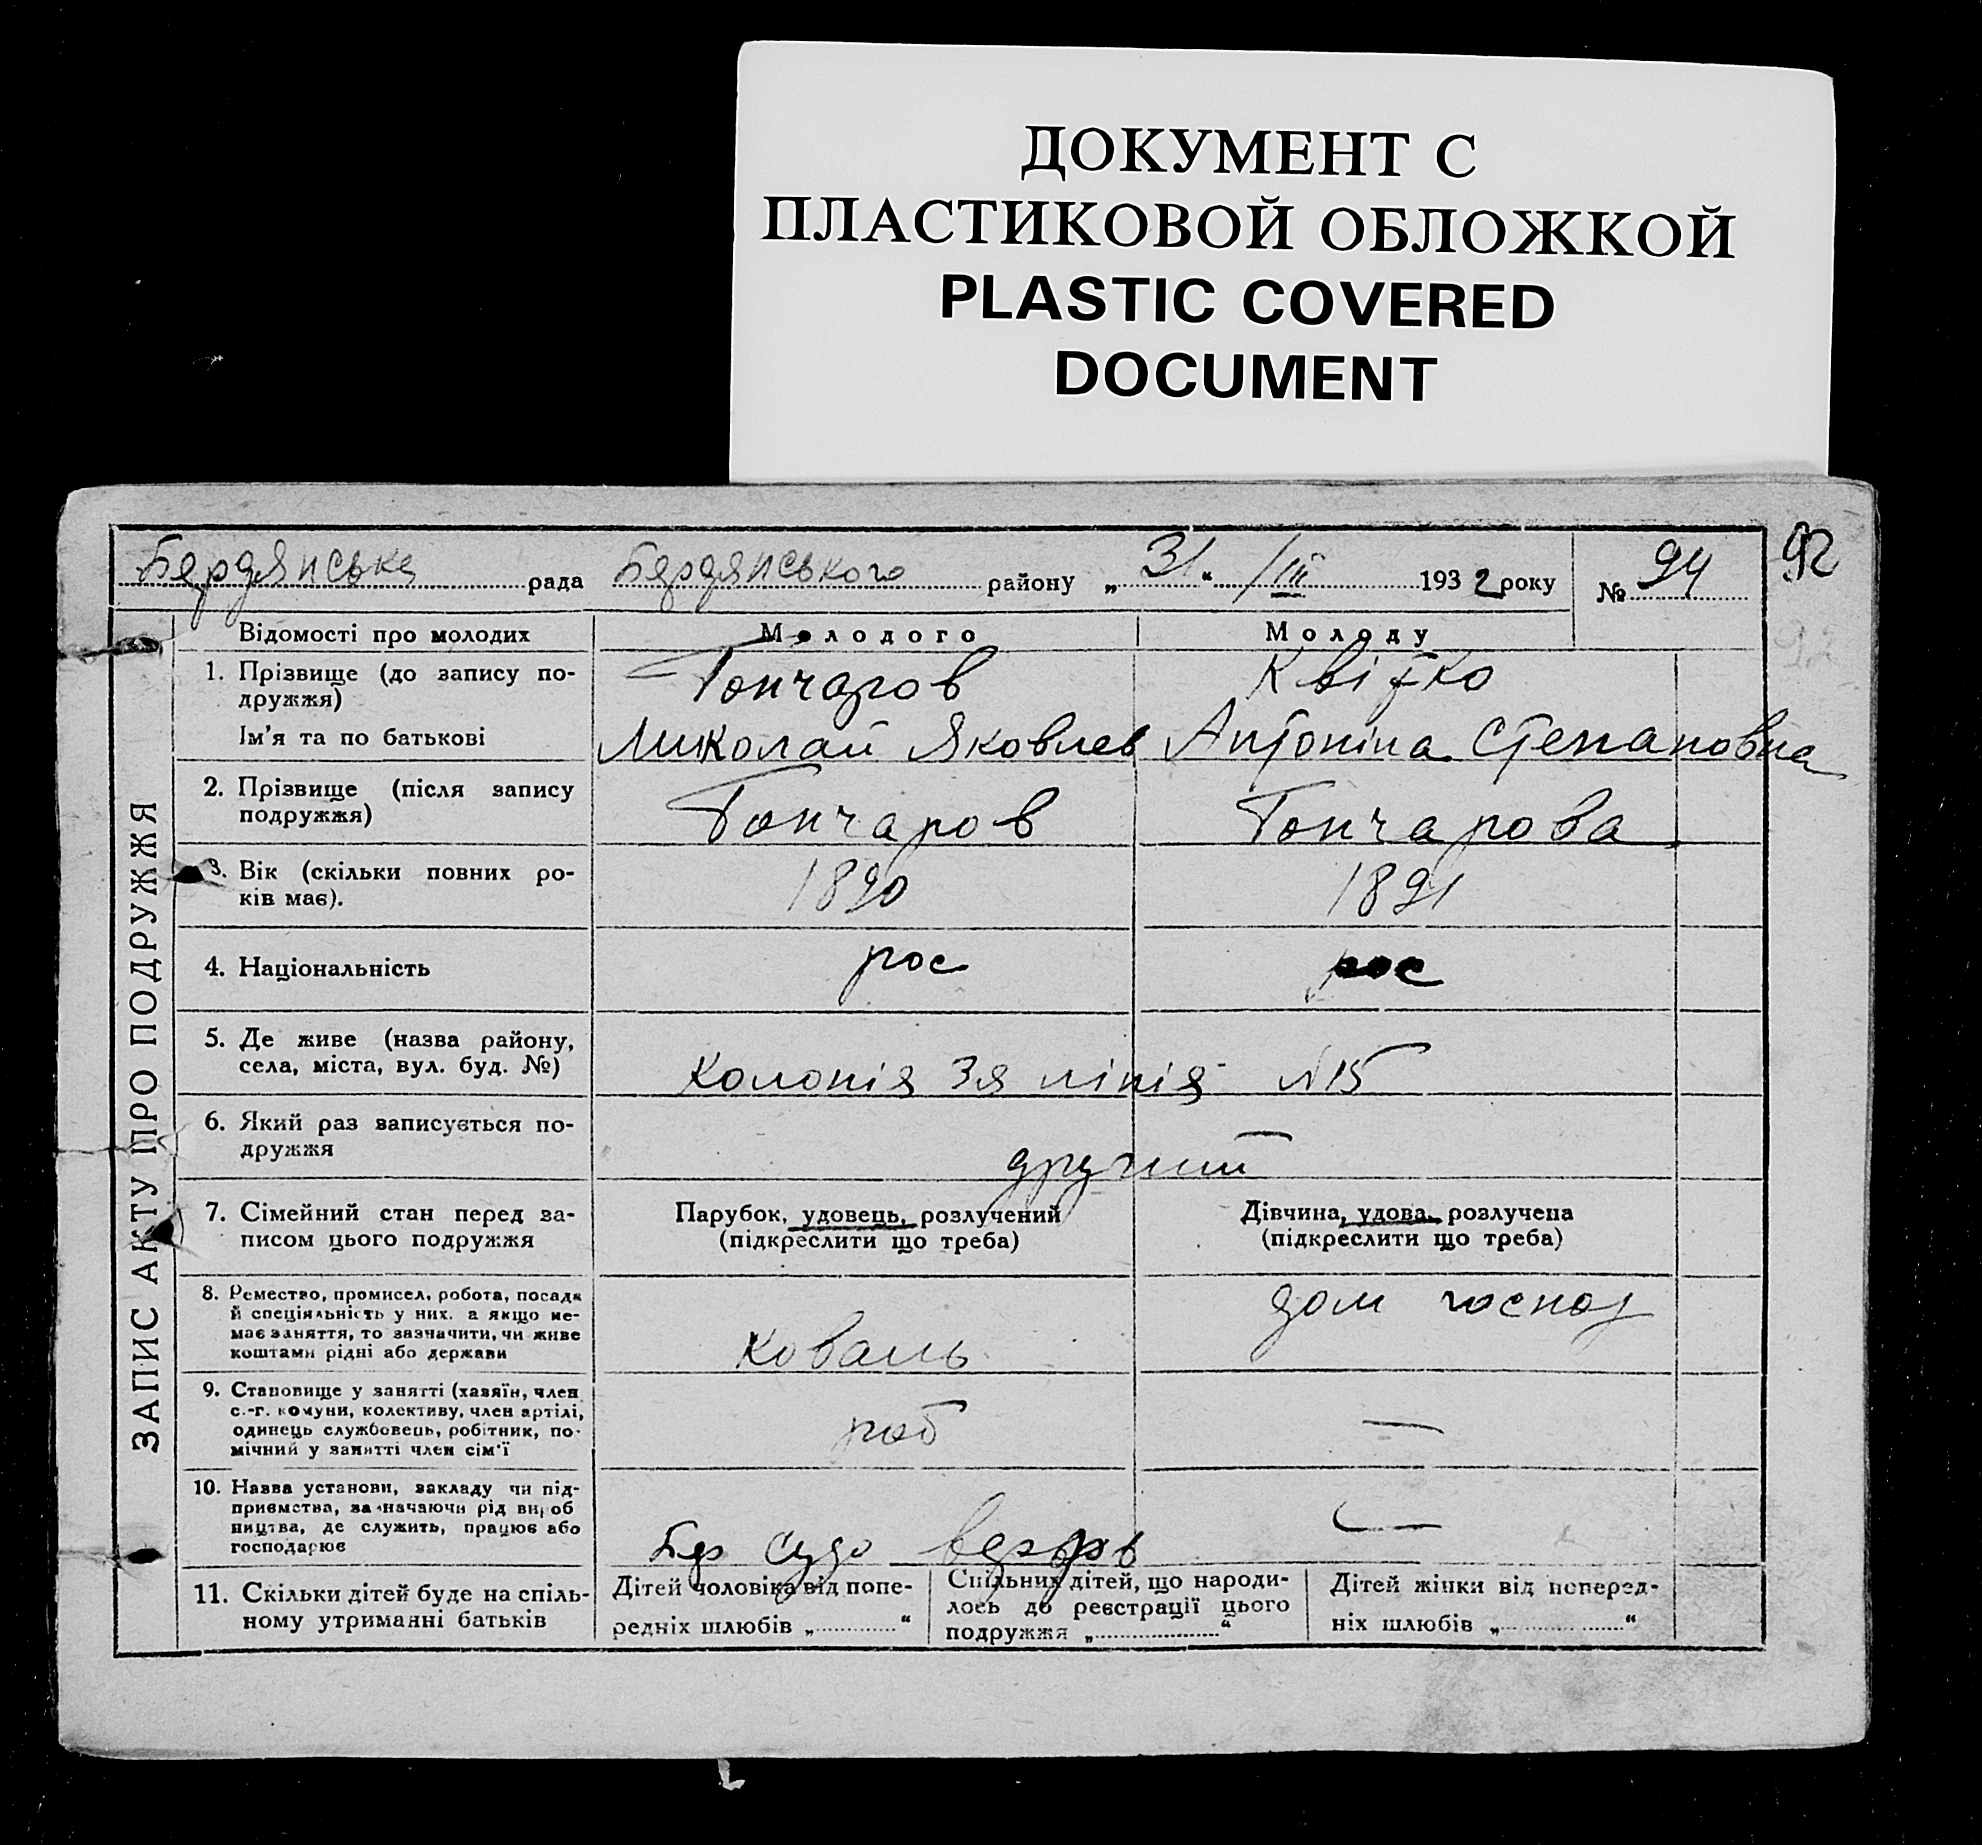 ДОКУМЕНТ С
ПЛАСТИКОВОЙ ОБЛОЖКОЙ
PLASTIC COVERED
DOCUMENT
92
Бердянська рада Бердянського району „31“ /III 1932 року № 94
92
ЗАПИС АКТУ ПРО ПОДРУЖЖЯ
Відомості про молодих Молодого Молоду
1. Прізвище (до запису по-
дружжя)
Гончаров Квітко
Ім'я та по батькові Миколай Яковлев Антоніна Степановна
2. Прізвище (після запису
подружжя)
Гончаров Гончарова
3. Вік (скільки повних ро-
ків має).
1890 1891
4. Національність рос рос
5. Де живе (назва району,
села, міста, вул. буд. №)
Колонія 3я лінія N 15
6. Який раз записується по-
дружжя
другий
7. Сімейний стан перед за-
писом цього подружжя
Парубок, удовець, розлучений
(підкреслити що треба)
Дівчина, удова, розлучена
(підкреслити що треба)
8. Ремество, промисел, робота, посада
й спеціяльність у них, а якщо не-
має заняття, то зазначити, чи живе
коштами рідні або держави
коваль дом господ
9. Становище у занятті (хазяїн, член
с.-г. комуни, колективу, член артілі,
одинець службовець, робітник, по-
мічний у занятті член сім'ї
роб —
10. Назва установи, закладу чи під-
приємства, зазначаючи рід вироб
ництва, де служить, працює або
господарює
Бер судо —
11. Скільки дітей буде на спіль-
ному утриманні батьків
Дітей чоловіка від попе-
редніх шлюбів „ “
Спільних дітей, що народи-
лось до реєстрації цього
подружжя „ “
Дітей жінки від поперед-
ніх шлюбів „ “